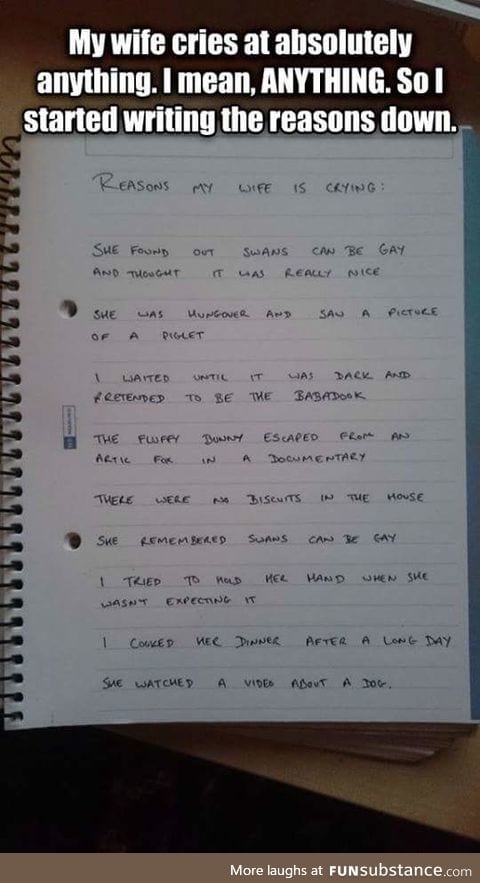 My wife cries at absolutely
anything. I mean, ANYTHING. So I
started writing the reasons down.
REASONS MY WIFE IS CRYING:
SHE FOUND OUT SWANS CAN BE GAY
AND THOUGHT IT WAS REALLY NICE
SHE WAS HUNGOVER AND SAW A PICTURE
OF A PIGLET
I WAITED UNTIL IT WAS DARK AND
PRETENDED TO BE THE BABADOOK
THE FLUFFY BUNNY ESCAPED FROM AN
ARTIC FOX IN A DOCUMENTARY
THERE WERE NO BISCUITS IN THE HOUSE
SHE REMEMBERED SWANS CAN BE GAY
I TRIED TO HOLD HER HAND WHEN SHE
WASNT EXPECTING IT
I COOKED HER DINNER AFTER A LONG DAY
SHE WATCHED A VIDEO ABOUT A DOG.
More laughs at FUNsubstance.com